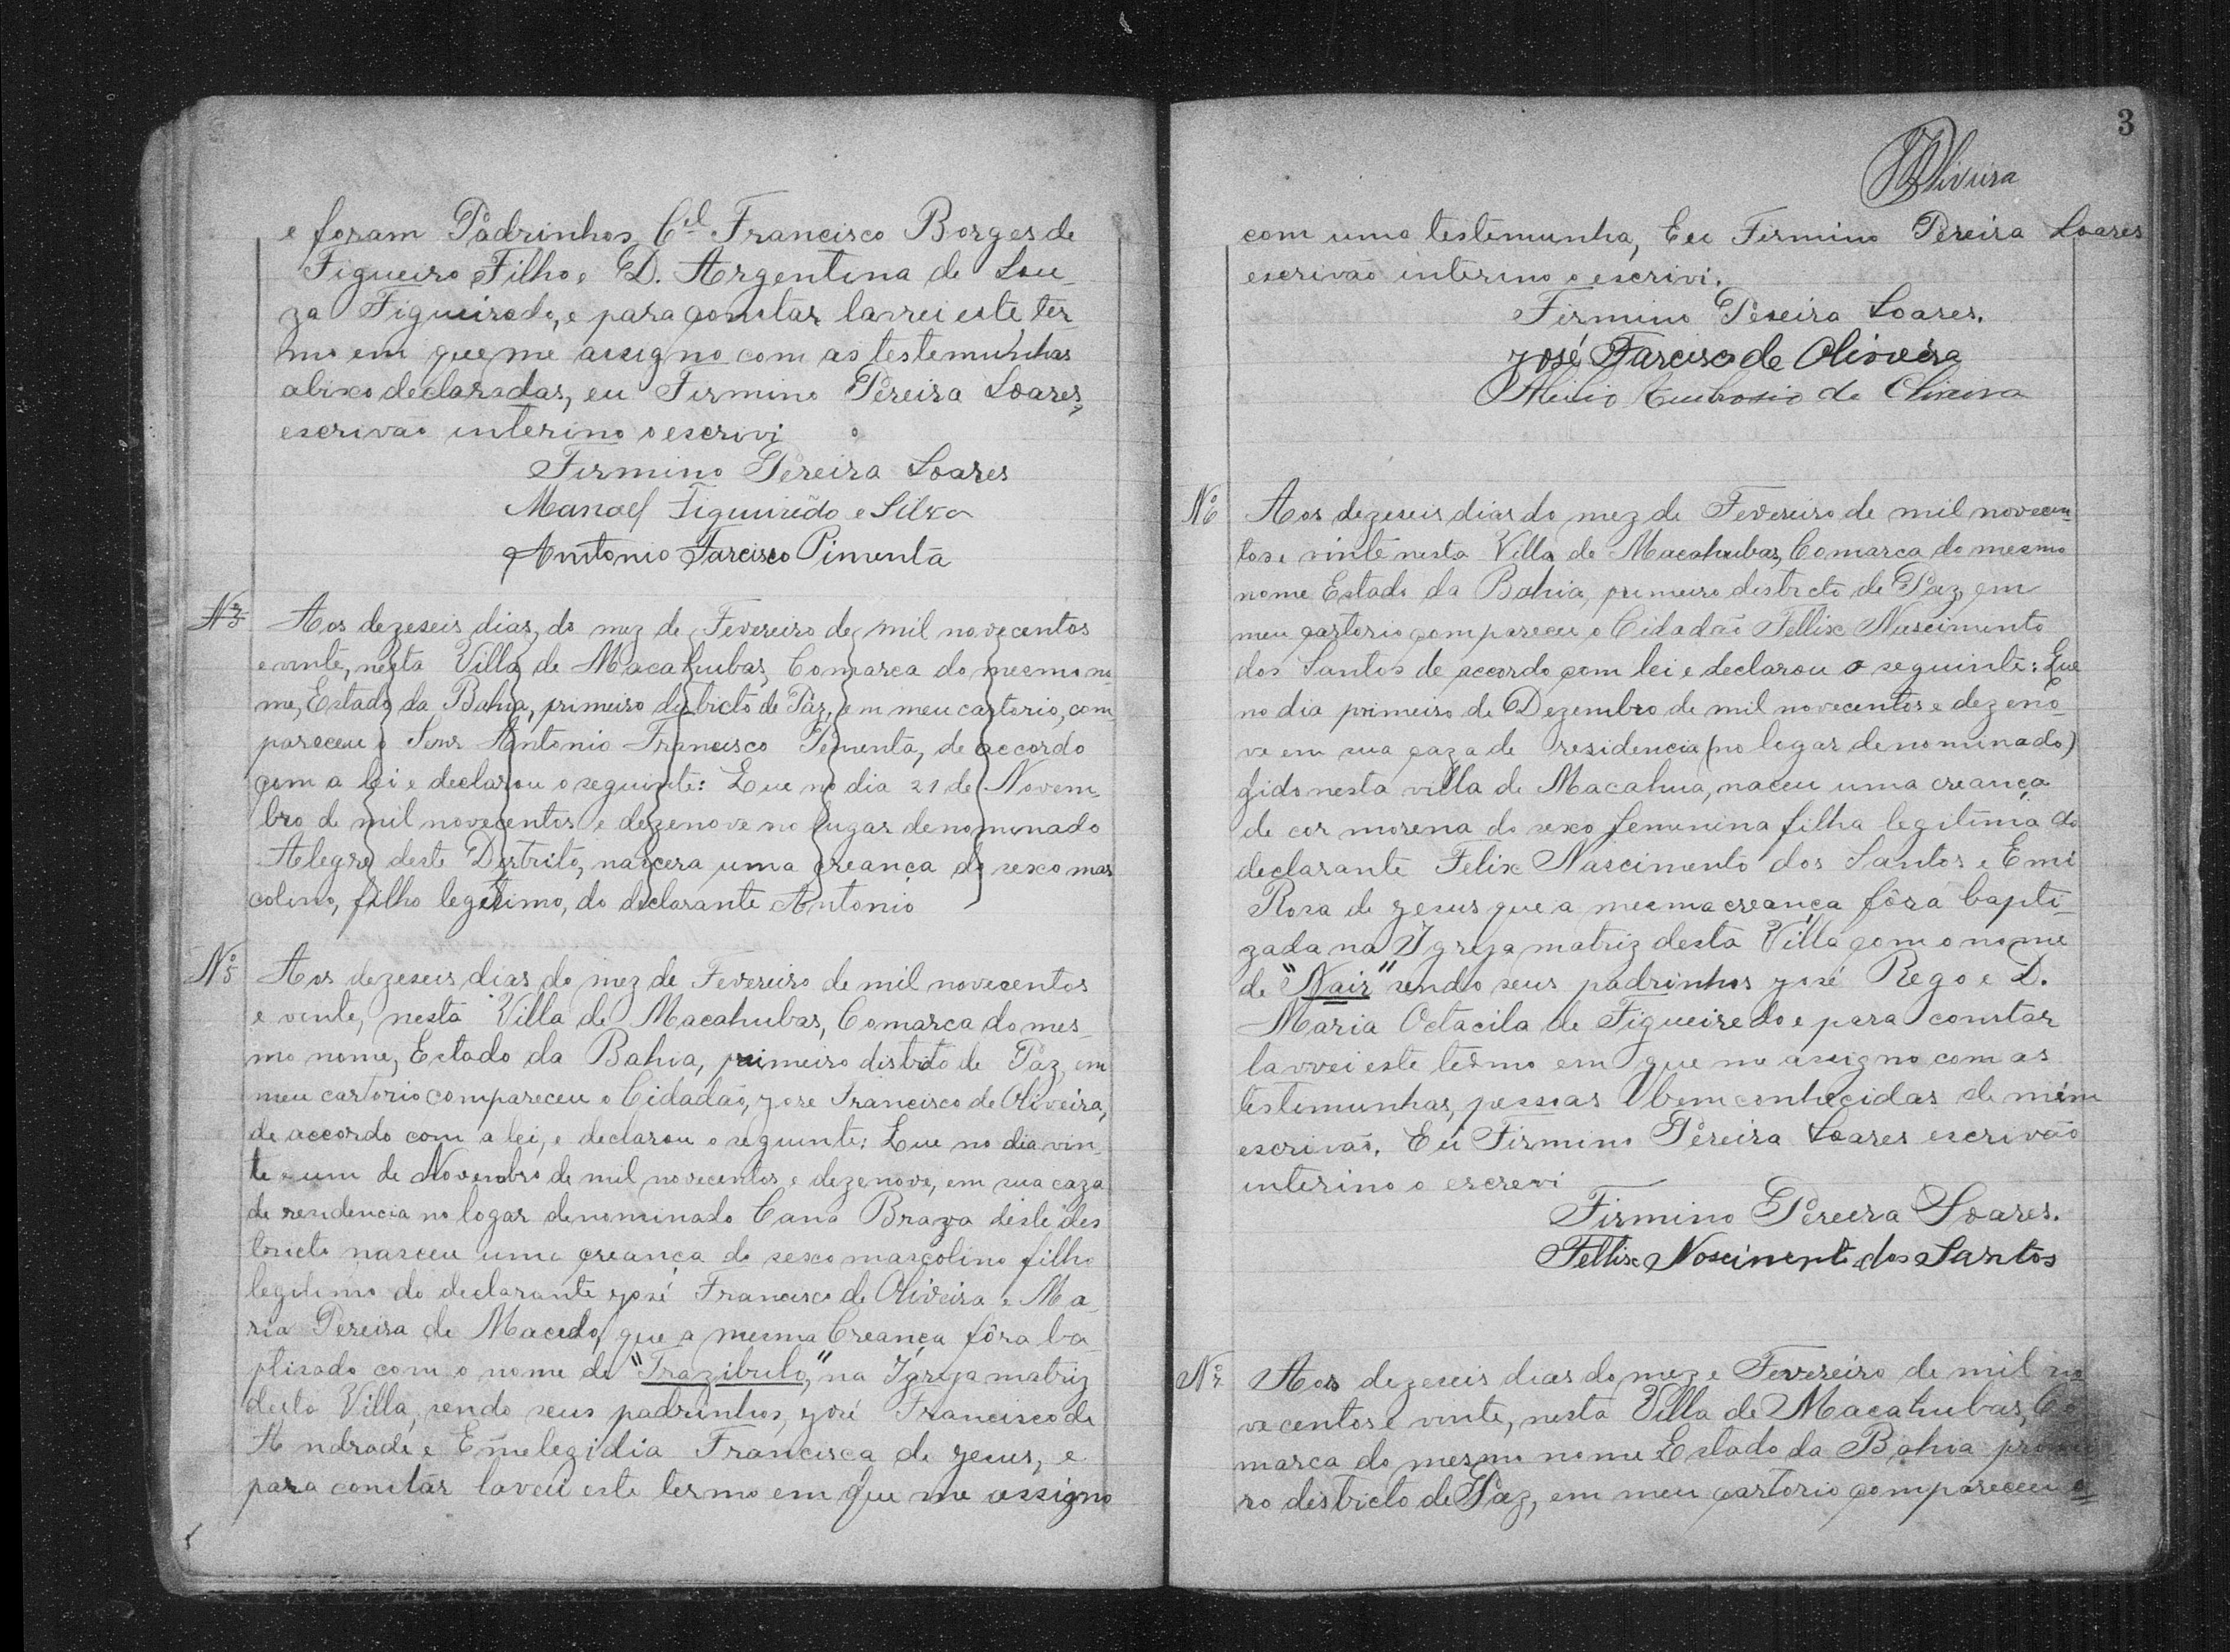 e foram Padrinhos Cel Francisco Borges de
Figueiro Filho e D. Argentina de Sou-
za Figueiredo, e para constar lavrei este ter-
mo em que me assigno com as testemunhas
abixo declaradas, eu Firmino Pereira Soares,
escrivão interino o escrivi
Firmino Pereira Soares
Manoel Figueirêdo e Silva
Antonio Farcisco Pimenta
Nº 5
Aos dezeseis dias, do mez de Fevereiro de mil novecentos
e vinte, nesta Villa de Macahubas, Comarca do mesmo no-
me, Estado da Bahia, primeiro districto de Paz, em meu cartorio, com-
pareceu o Senr Antonio Francisco Pimenta, de accordo
com a lei e declarou o seguinte: Que no dia 21 de Novem-
bro de mil novecentos e dezenove no lugar denominado
Alegre deste Distrito, nascera uma creança do sexo mas
colino, filho legitimo, do declarante Antonio
Nº 5
Aos dezeseis dias do mez de Fevereiro de mil novecentos
e vinte, nesta Villa de Macahubas, Comarca do mes-
mo nome, Estado da Bahia, primeiro distrito de Paz, em
meu cartorio compareceu o Cidadão, José Francisco de Oliveira,
de accordo com a lei, e declarou o seguinte: Que no dia vin-
te e um de Novembro de mil novecentos e dezenove, em sua caza
de residencia no logar denominado Cana Brava deste des
tricto nasceu uma creança do sexo mascolino filho
legitimo do declarante José Francisco de Oliveira e Ma-
ria Pereira de Macedo, que a mesma Creança fôra ba-
ptisado com o nome de "Trazibulo," na Igreja matriz
desta Villa, sendo seus padrinhos, José Francisco de
Andrade e Emelegidia Francisca de Jesus, e
para constar lavrei este termo em que me assigno
3
Oliveira
com uma testemunha, Eu Firmino Pereira Soares
escrivão interino o escrivi.
Firmino Pereira Soares.
José Farcisco de Oliveira
Ambrosio de Oliveira
Nº 6
Aos dezeseis dias do mez de Fevereiro de mil novecen-
tos e vinte nesta Villa de Macahubas, Comarca do mesmo
nome Estado da Bahia, primeiro districto de Paz, em
meu cartorio compareceu o Cidadão Fellix Nascimento
dos Santos de accordo com lei e declarou o seguinte: Que
no dia primeiro de Dezembro de mil novecentos e dezeno-
ve em sua caza de residencia (no logar denominado)
gido nesta villa de Macahua, naceu uma creança
de cor morena do sexo feminina filha legitima do
declarante Felix Nascimento dos Santos e Emi
Rosa de Jesus que a mesma creança fôra bapti-
zada na Igreja matriz desta Villa com o nome
de "Nair" sendo seus padrinhos José Rego e D.
Maria Octacila de Figueiredo e para constar
lavrei este termo em que me assigno com as
testemunhas, pessoas bem conhecidas de mim
escrivão. Eu Firmino Pereira Soares escrivão
interino o escrevi
Firmino Pereira Soares.
Fellix Noscimento dos Santos
Nº 7
Aos dezeseis dias do mez e Fevereiro de mil no
vecentos e vinte, nesta Villa de Macahubas, Co
marca do mesmo nome Estado da Bahia primei
ro districto de Paz, em meu cartorio compareceu o